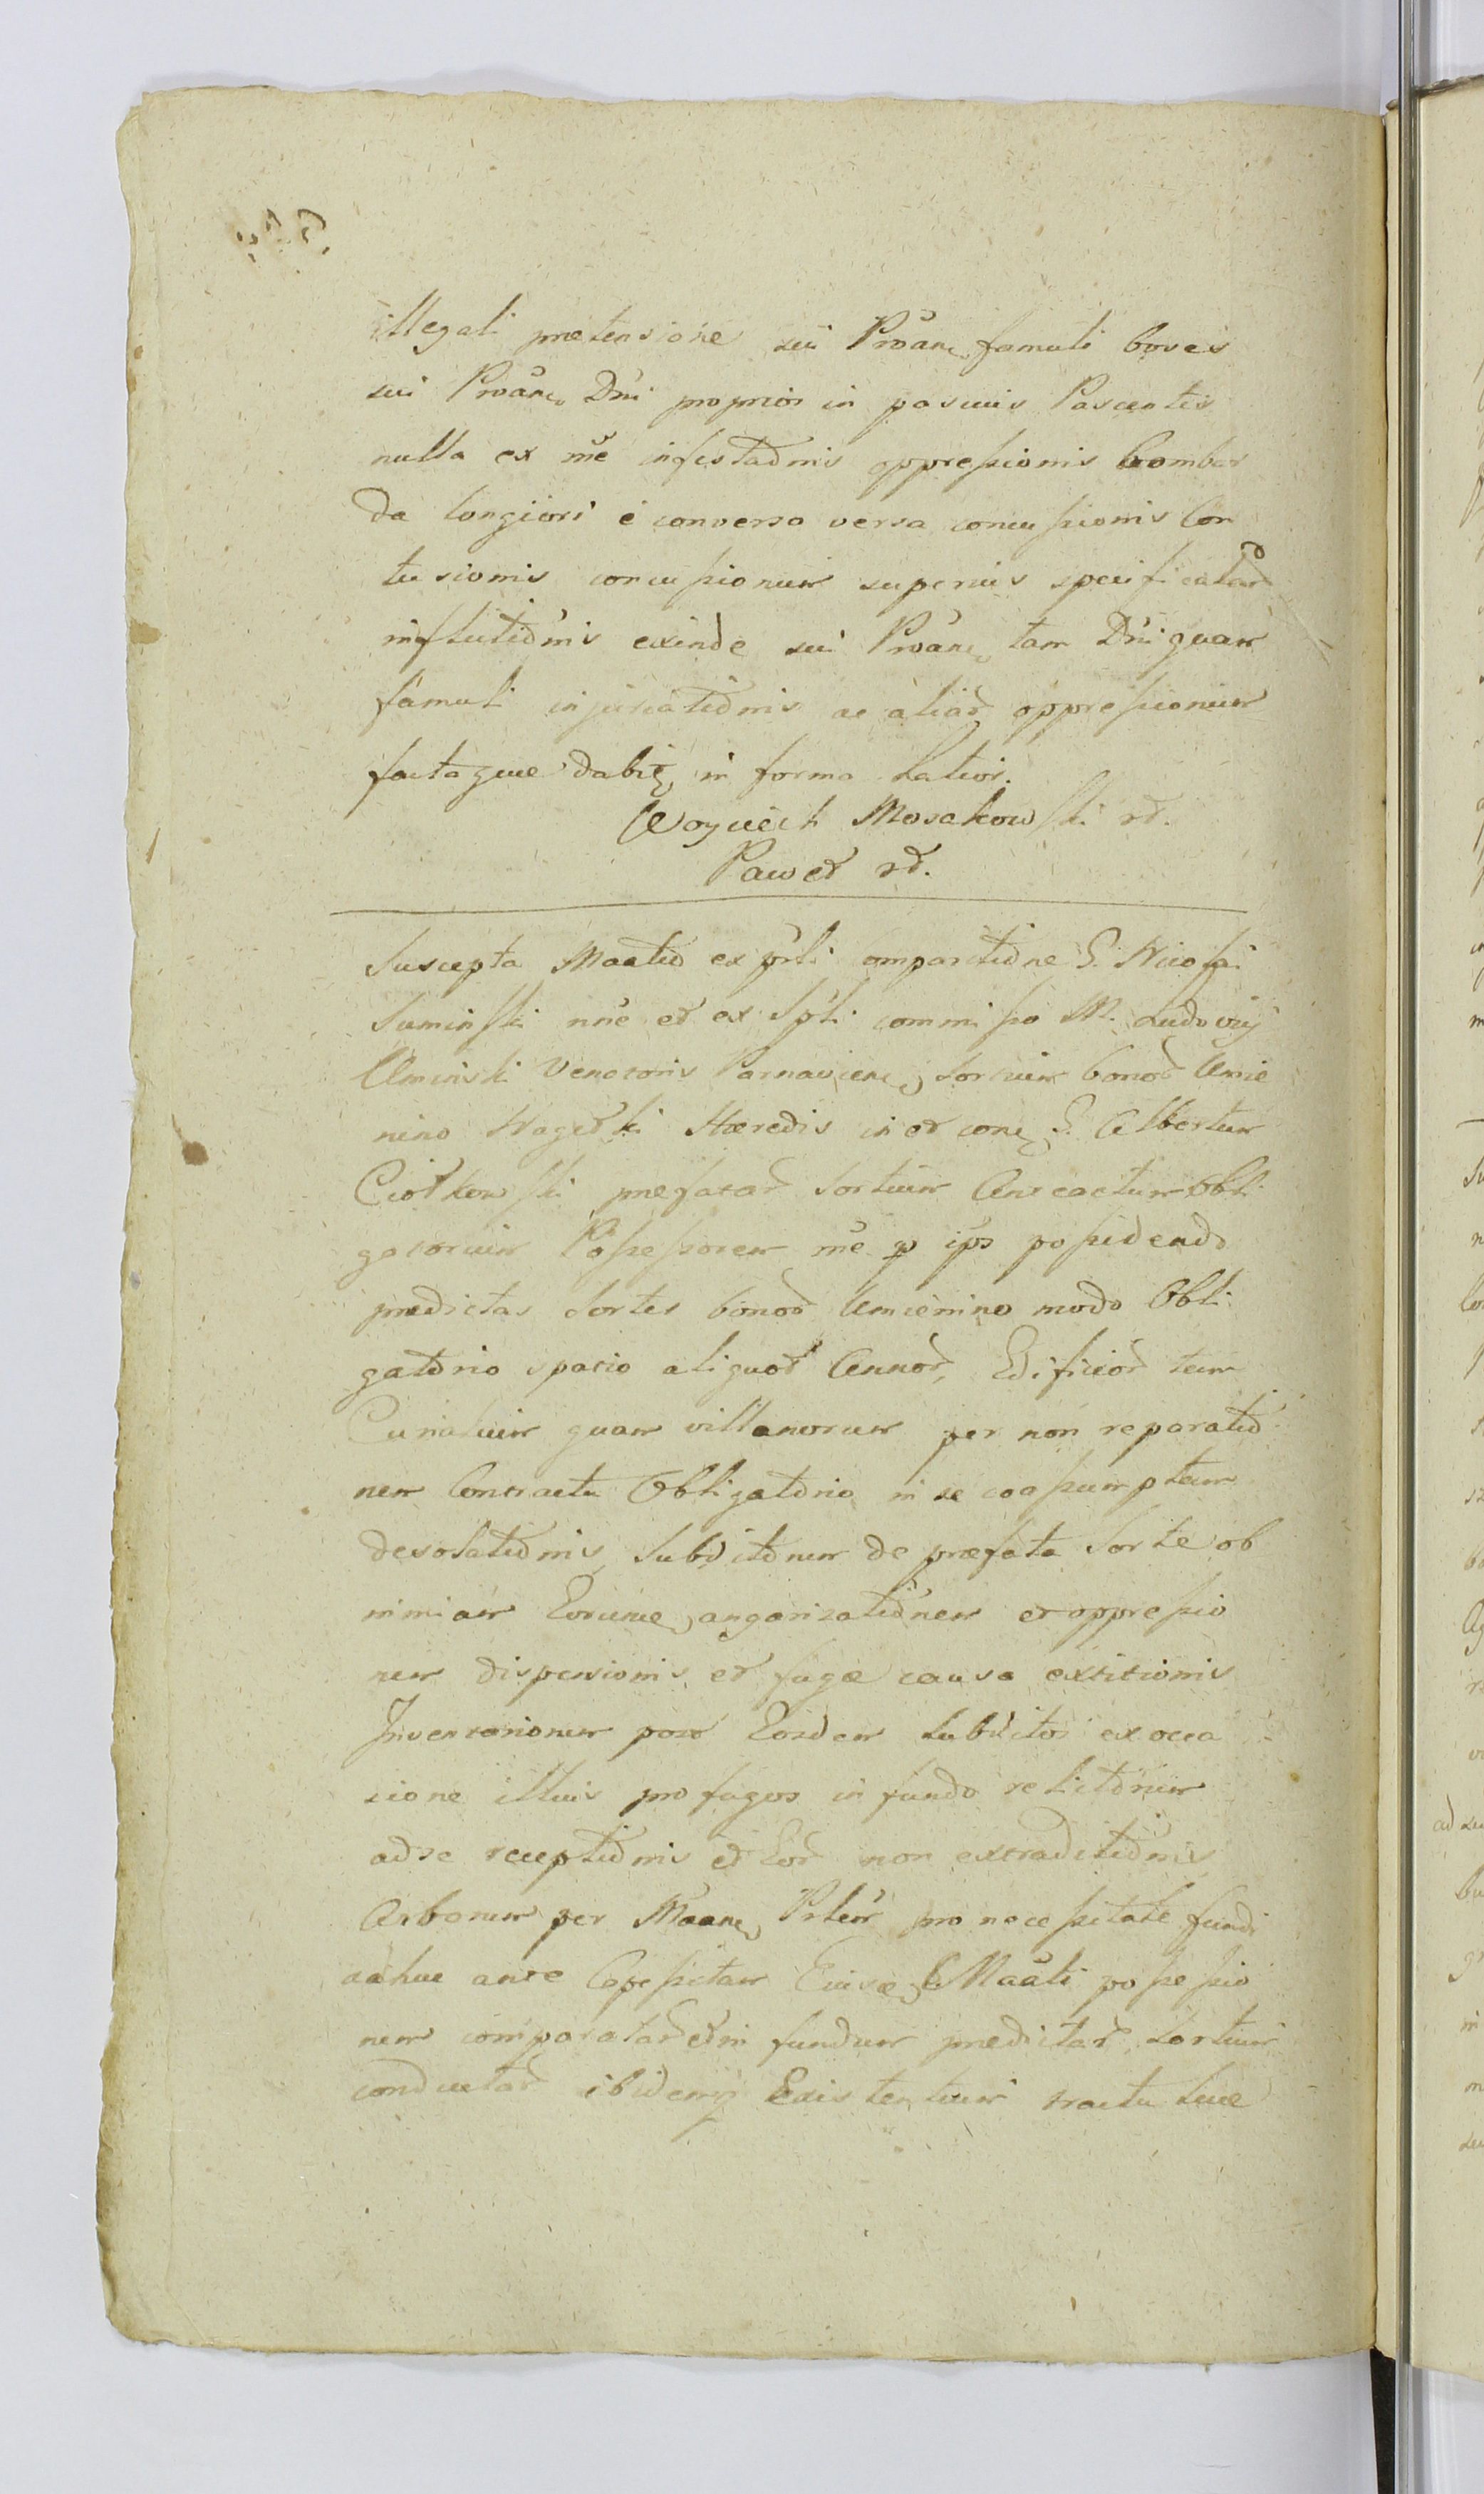 illegali prætensione sui Proãne famuli boves
sui Proãne Dñi proprios in pascuis Pascentis
nulla ex mẽ infestatõnis oppressionis bombar
da longiori è converso versa concussionis Con
tusionis concussionum superius specificatar
inflictiõnis exinde sui Proãne tam Dñi quam
famuli injuriatiõnis ac aliar oppressionum
factaque dabit in forma Latior.
Woyciech Mosakowski rđ.
Paweł rđ.
Suscepta Maatio ex pṙli comparitiõne G. Nicolai
Suminski nñe et ex Spli commisso M. Ludovicij
Uminski Venatoris Parnavien, Sortium bonor Umie
nino Nagurki Hæredis in et cone G. Albertum
Ciołkowski præfatar Sortium Contractum Obli
gatorium Possessorem mẽ ꝓ ipõ possidendo
prædictas Sortes bonor Umienino modo Obli
gatõrio spatio aliquot Annor, Edificior tum
Curialium quam villanorum per non reparatiõ
nem Contractu Obligatõrio in se coassumptam
desolatiõnis Subditõrum de præfata Sorte ob
nimiam Eorum angarizatiõnem et oppressio
nem dispersionis et fugæ causa extitionis
Inventariorum post Eosdem Subditos ex occa
sione illius profugos in fundo relictõrum
ad se receptiõnis et Eor non extraditiõnis
Arborum per Maane Prlem pro necessitate fundi
adhuc ante Capessitam Maati possessio
nem comparatar et in fundum prædictar Sortium
conductar ibidemq Existentium tractu suæ